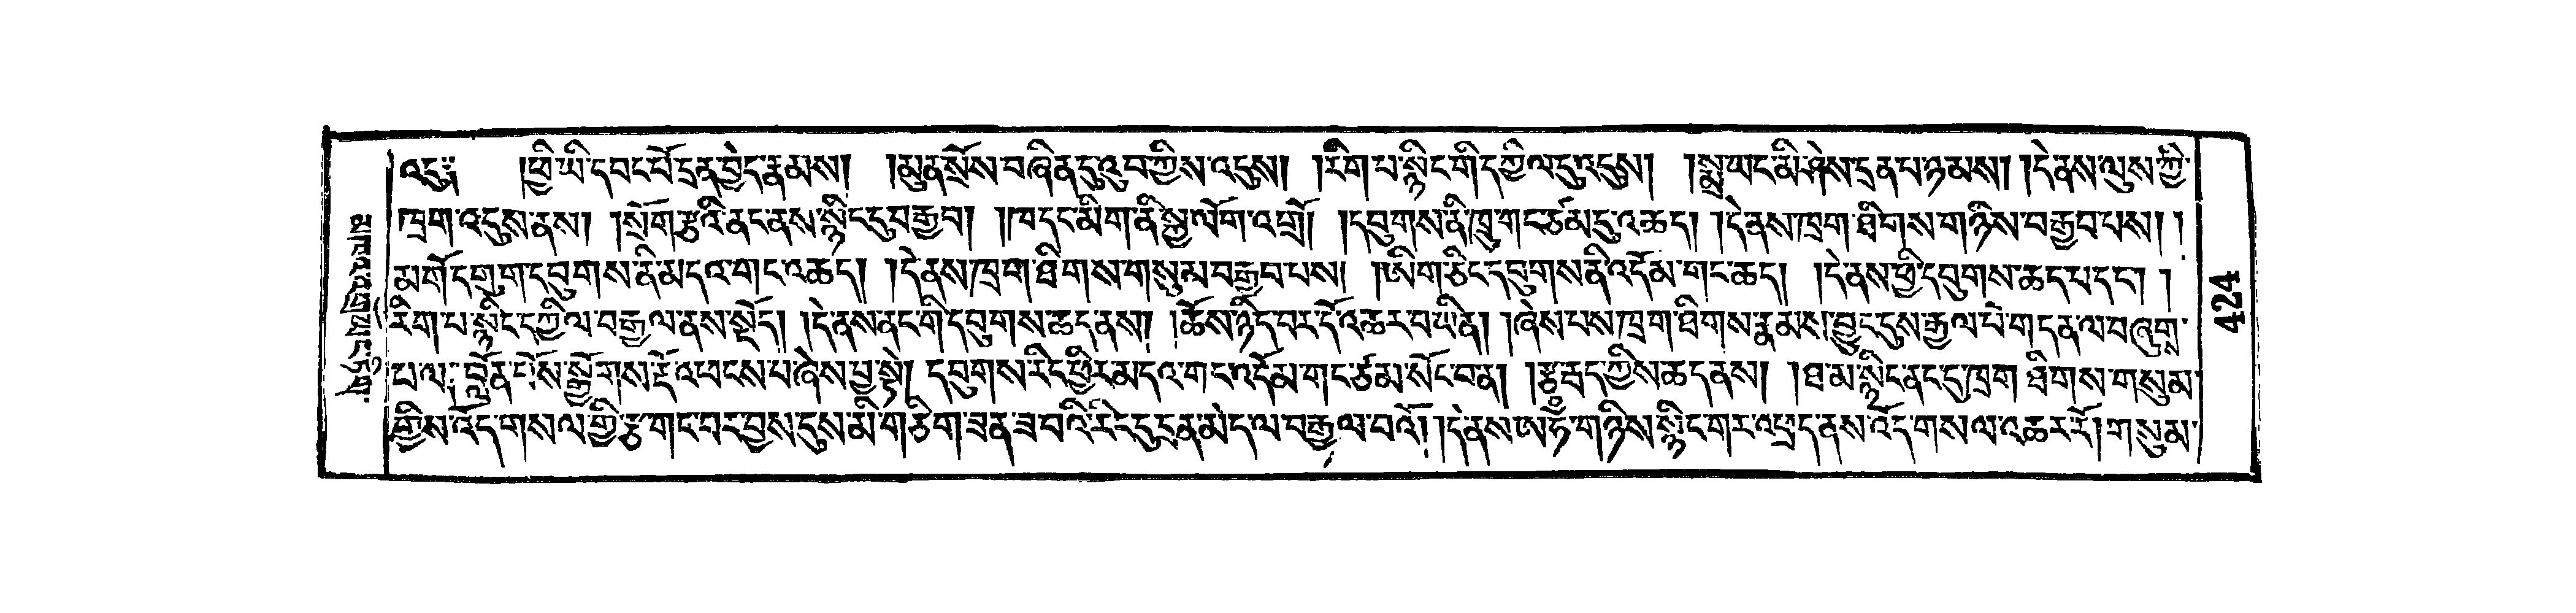 འདུ༔ །ཕྱི་ཡི་དབང་པོ་དྲན་བྱེད་རྣམས། །མུན་སྲོས་བཞིན་དུ་འུབ་ཀྱིས་འདུས། །རིག་པ་སྙིང་གི་དཀྱིལ་དུ་འདུས། །སྨྲ་ཡང་མི་ཤེས་དྲན་པ་ཉམས། །དེ་ནས་ལུས་ཀྱི་
ཁྲག་འདུས་ནས། །སྲོག་རྩའི་ནང་ནས་སྙིང་དུ་བརྒྱབ། །ཁ་དང་མིག་ནི་སྐྱ་ལོག་འགྲོ། །དབུགས་ནི་ཁྲུ་གང་ཙམ་དུ་འཆད། །དེ་ནས་ཁྲག་ཐིགས་གཉིས་བརྒྱབ་པས། །
མགོ་དགུག་དབུགས་ནི་མདའ་གང་འཆད། །དེ་ནས་ཁྲག་ཐིགས་གསུམ་བརྒྱབ་པས། །ཨིག་ཅིང་དབུགས་ནི་འདོམ་གང་ཆད། །དེ་ནས་ཕྱི་དབུགས་ཆད་པ་དང་། །
རིག་པ་སྙིང་དཀྱིལ་བརྒྱལ་ནས་སྡོད། །དེ་ནས་ནང་གི་དབུགས་ཆད་ནས། །ཆོས་ཉིད་བར་དོ་འཆར་བ་ཡིན། །ཞེས་པས་ཁྲག་ཐིགས་རྣམས་བྱུང་དུས་རྒྱལ་པོ་གདན་ལ་བཞུགས་
པ་ལ་བློན་པོས་སྒྱོགས་རྡོ་འཕངས་པ་ཞེས་བྱ་སྟེ། དབུགས་རིང་ཕྱིར་མདའ་གང་འདོམ་གང་ཙམ་སོང་བན། །རྩུབ་རྒོད་ཀྱིས་ཆད་ནས། །ཐ་མ་སྙིང་ནང་དུ་ཁྲག་ཐིགས་གསུམ་
གྱིས་འོད་གསལ་གྱི་རྩ་གང་བར་བྱས་དུས་མི་གཅིག་ཟན་ཟ་བའི་རིང་དུ་དྲན་མེད་ལ་བརྒྱལ་བའོ། །དེ་ནས་ཨ་ཧཾ་གཉིས་སྙིང་གར་འཕྲད་ནས་འོད་གསལ་འཆར་རོ། གསུམ་